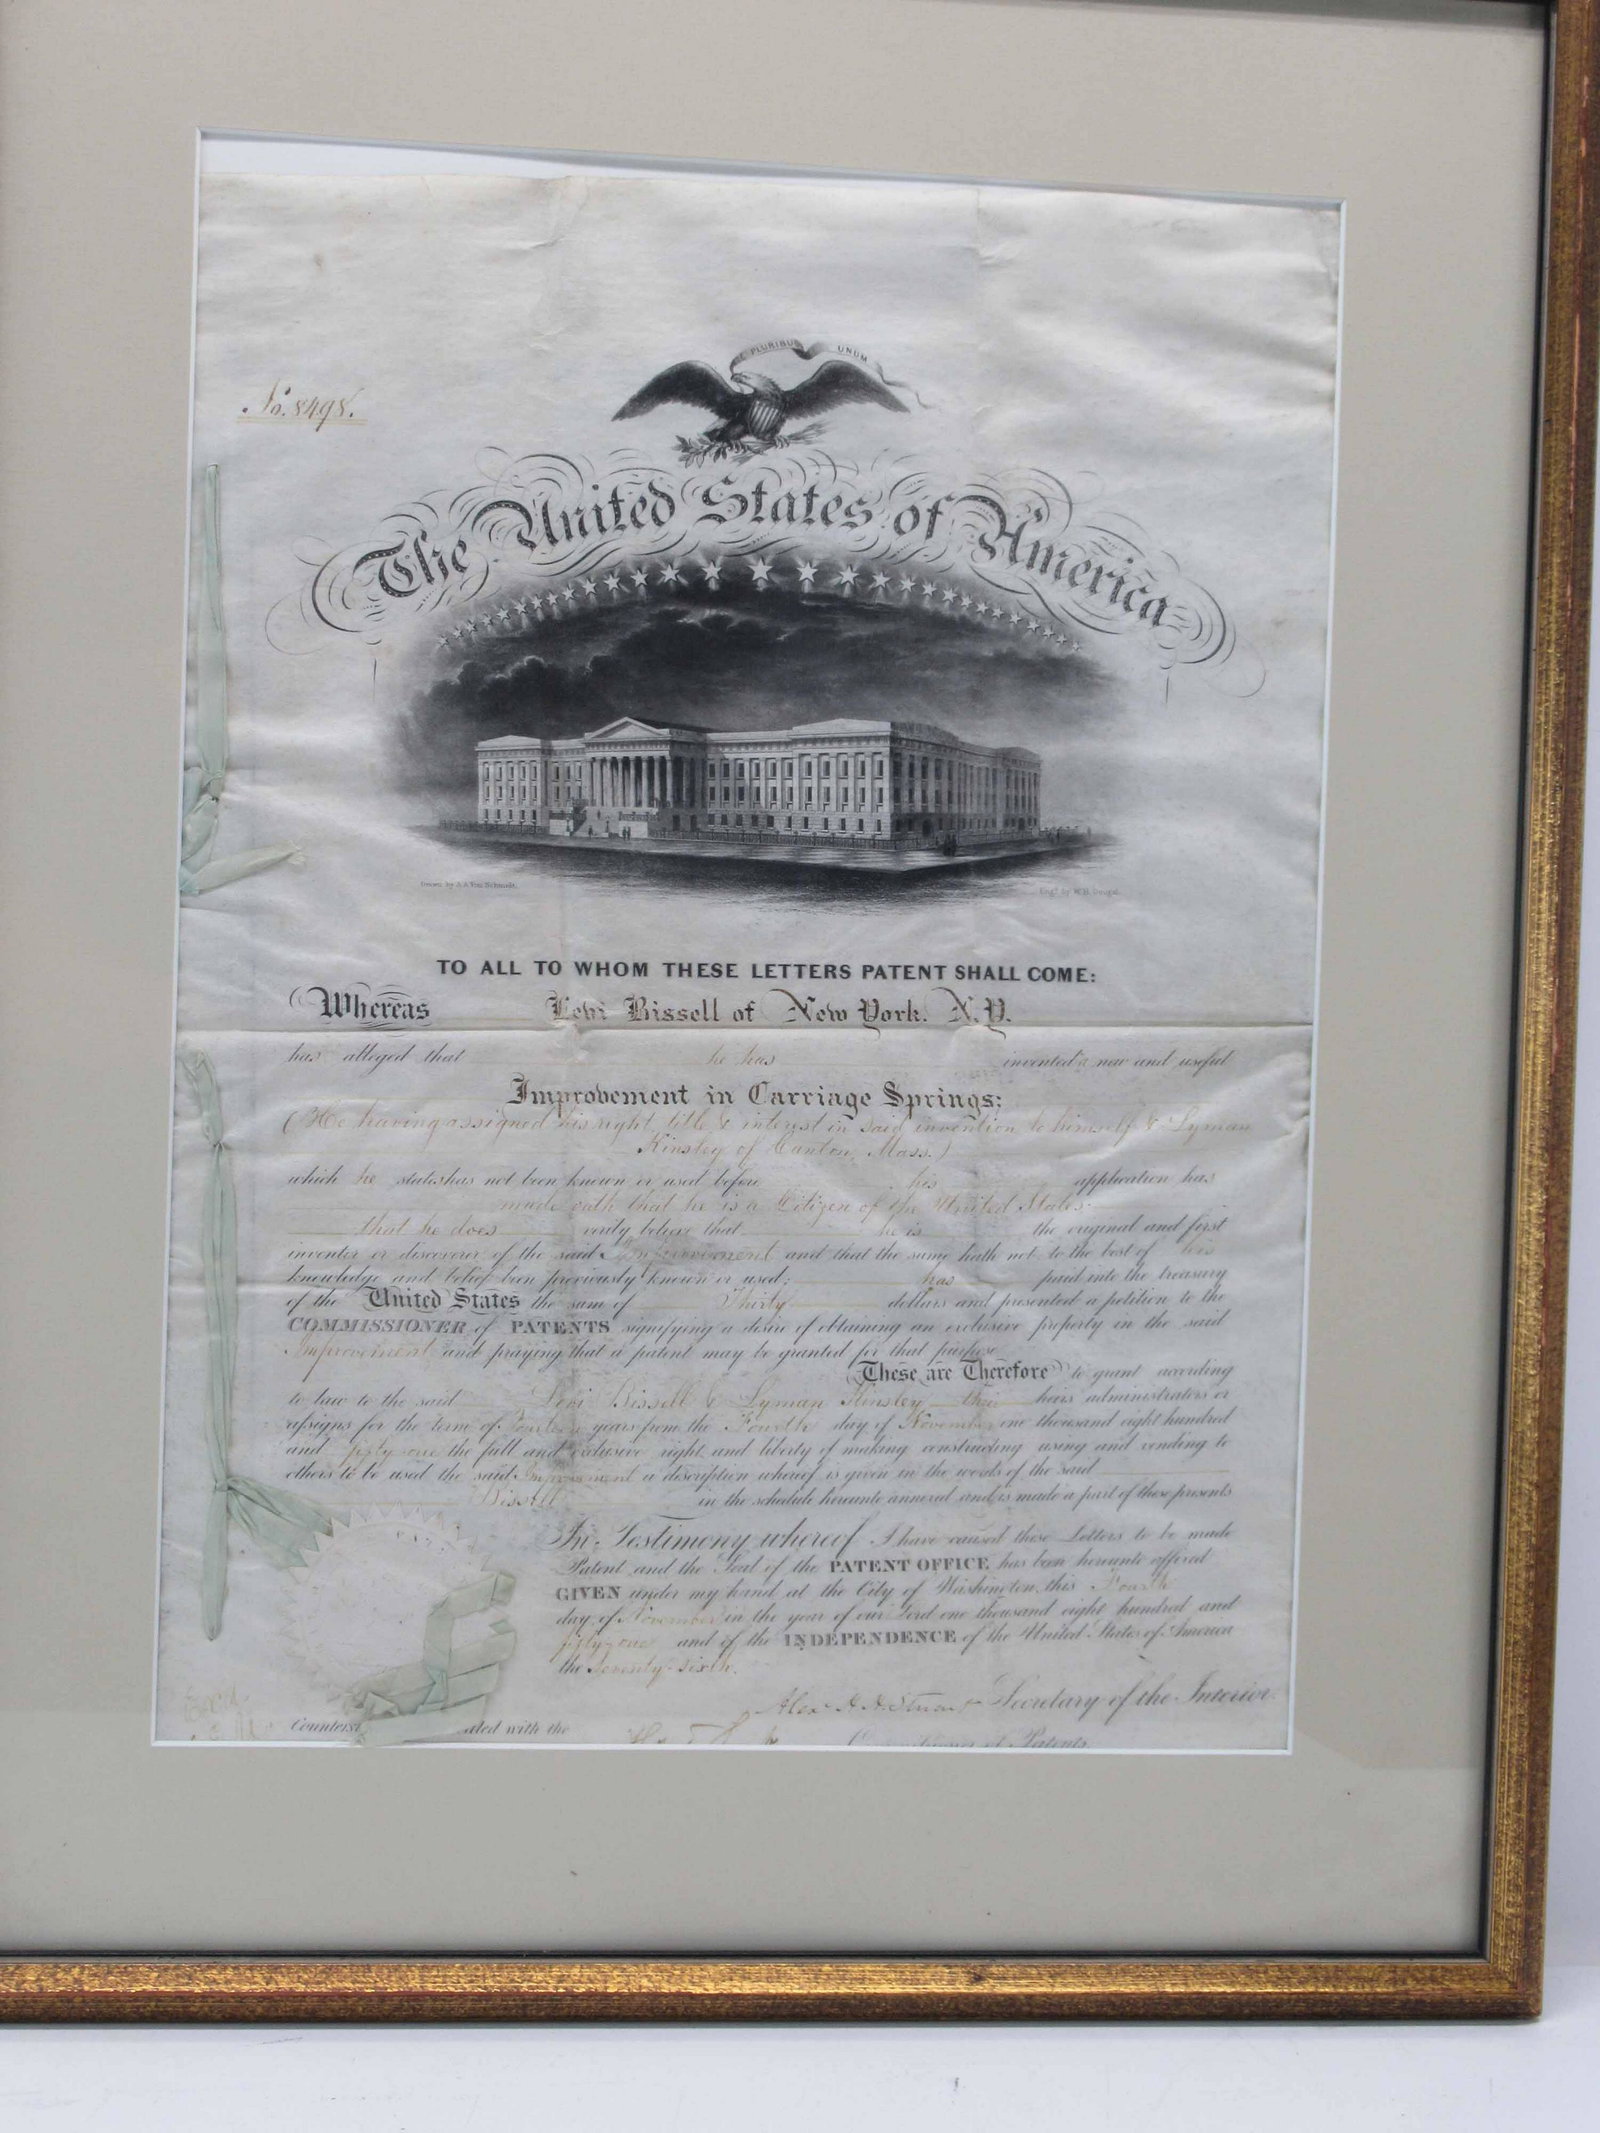 E PLURIBUS UNUM
No. 8498.
The United States of America
Drawn by A.A. Von Schmidt.
Engd. by W.H. Dougal.
TO ALL TO WHOM THESE LETTERS PATENT SHALL COME:
Whereas Levi Bissell of New York. N.Y.
has alleged that he has invented a new and useful
Improvement in Carriage Springs;
(He having assigned his right, title & interest in said invention to himself & Lyman
Kinsley of Canton, Mass.)
which he states has not been known or used before his application has
made oath that he is a Citizen of the United States
that he does verily believe that he is the original and first
inventor or discoverer of the said Improvement and that the same hath not to the best of his
knowledge and belief been previously known or used; has paid into the treasury
of the United States the sum of Thirty dollars and presented a petition to the
COMMISSIONER of PATENTS signifying a desire of obtaining an exclusive property in the said
Improvement and praying that a patent may be granted for that purpose
These are Therefore to grant according
to law to the said Levi Bissell & Lyman Kinsley their heirs administrators or
assigns for the term of Fourteen years from the Fourth day of November one thousand eight hundred
and fifty-one the full and exclusive right and liberty of making constructing using and vending to
others to be used the said Improvement a description whereof is given in the words of the said
Bissell in the schedule hereunto annexed and is made a part of these presents
In Testimony whereof I have caused these Letters to be made
Patent and the Seal of the PATENT OFFICE has been hereunto affixed
GIVEN under my hand at the City of Washington this Fourth
day of November in the year of our Lord one thousand eight hundred and
fifty-one and of the INDEPENDENCE of the United States of America
the Seventy-sixth.
Alex H. H. Stuart Secretary of the Interior.
Exd.
with the
Commissioner of Patents.